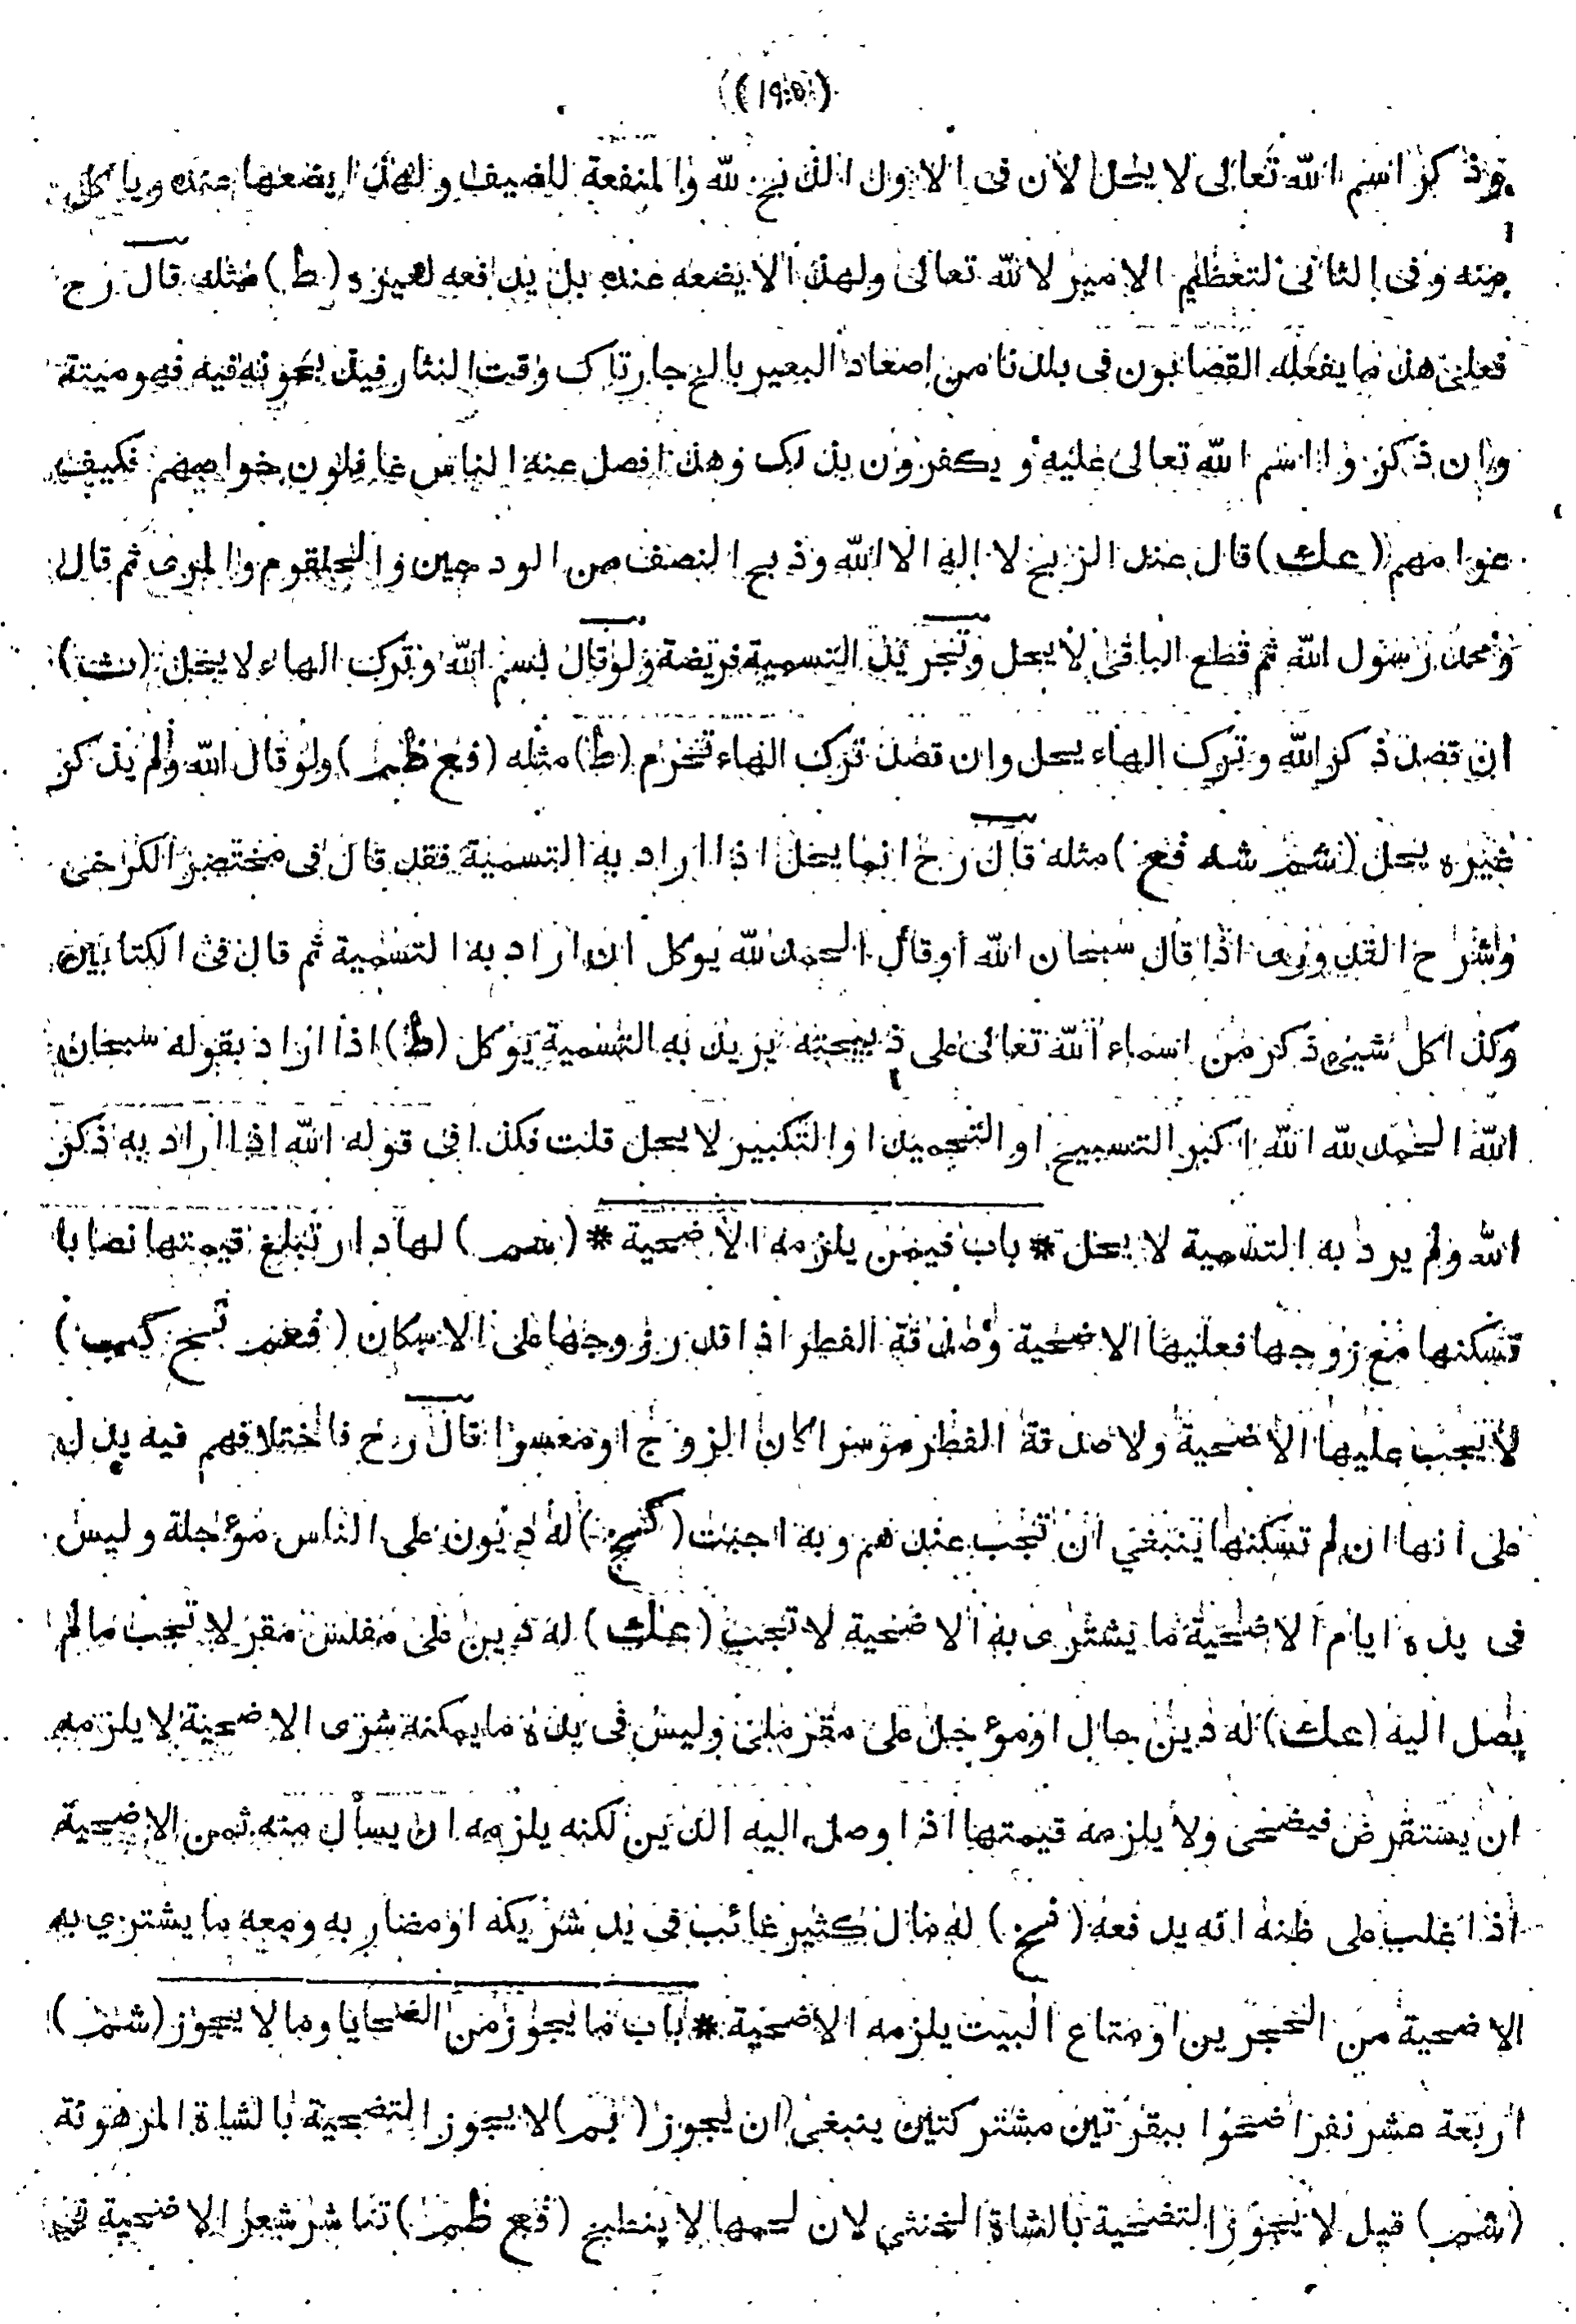 (١٩٥)
وذكر اسم الله تعالى لا يحل لان فى الاول الذبح لله والمنفعة للضيف ولهذا يضعها عنده وياكل
منه وفى الثانى لتعظيم الامير لا لله تعالى ولهذا لا يضعه عنده بل يدفعه لغيره (ط) مثله قال رح
فعلى هذا ما يفعله القصابون فى بلدنا من اصعاد البعير وقت النثار فيذبحونه فيه فهو ميتة
وان ذكروا اسم الله تعالى عليه ويكفرون بذلك وهذا فصل عنه الناس غافلون خواصهم فكيف
عوامهم (عك) قال عند الزبح لا اله الا الله وذبح النصف من الودجين والحلقوم والمرى ثم قال
ومحمد رسول الله ثم قطع الباقى لا يحل وتجريد التسمية فريضة ولو قال بسم الله وترك الهاء لا يحل (شت)
ان قصد ذكر الله وترك الهاء يحل وان قصد ترك الهاء تحرم (ط) مثله (فع ظم) ولو قال الله ولم يذكر
غيره يحل (شم شه فع) مثله قال رح انما يحل اذا اراد به التسمية فقد قال فى مختصر الكرخى
وشرح القدورى اذا قال سبحان الله او قال الحمد لله يوكل ان اراد به التسمية ثم قال فى الكتابين
وكذا كل شيء ذكر من اسماء الله تعالى على ذبيحته يريد به التسمية يوكل (ط) اذا اراد بقوله سبحان
الله الحمد لله الله اكبر التسبيح او التحميد او التكبير لا يحل قلت فكذا فى قوله الله اذا اراد به ذكر
الله ولم يرد به التسمية لا يحل * باب فيمن يلزمه الاضحية * (شم) لها دار تبلغ قيمتها نصابا
تسكنها مع زوجها فعليها الاضحية وصدقة الفطر اذا قدر زوجها على الاسكان (فعم بخ كب)
لا تجب عليها الاضحية ولا صدقة الفطر موسرا كان الزوج او معسرا قال رح فاختلافهم فيه يدل
على انها ان لم تسكنها ينبغي ان تجب عندهم وبه اجبت (كبح) له ديون على الناس مؤجلة وليس
فى يده ايام الاضحية ما يشترى به الاضحية لا تجب (عك) له دين على مفلس مقر لا تجب ما لم
يصل اليه (عك) له دين حال او مؤجل على مقر ملى وليس فى يده ما يمكنه شرى الاضحية لا يلزمه
ان يستقرض فيضحى ولا يلزمه قيمتها اذا وصل اليه الدين لكنه يلزمه ان يسأل منه ثمن الاضحية
اذا غلب على ظنه انه يدفعه (فح) له مال كثير غائب فى يد شريكه او مضاربه ومعه ما يشترى به
الاضحية من الحجرين او متاع البيت يلزمه الاضحية * باب ما يجوز من الضحايا وما لا يجوز (شم)
اربعة عشر نفرا ضحوا ببقرتين مشتركتين ينبغى ان يجوز (بم) لا يجوز التضحية بالشاة المرهونة
(شم) قيل لا يجوز التضحية بالشاة الخنثى لان لحمها لا ينطبخ (فع ظم) تناثر شعر الاضحية